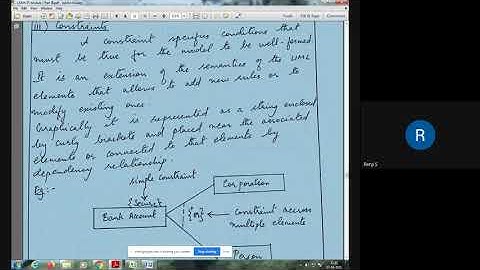 iii) Constraints
A constraint specifies conditions that
must be true for the model to be well-formed
It is an extension of the semantics of the UML
elements that allows to add new rules or to
modify existing ones.
Graphically it is represented as a string enclosed
by curly brackets and placed near the associated
elements or connected to that elements by
dependency relationship.
Eg:-
Simple Constraint
Corporation
{Secure}
Bank Account
{or}
Constraint accross
multiple elements
Person
R
Renji S